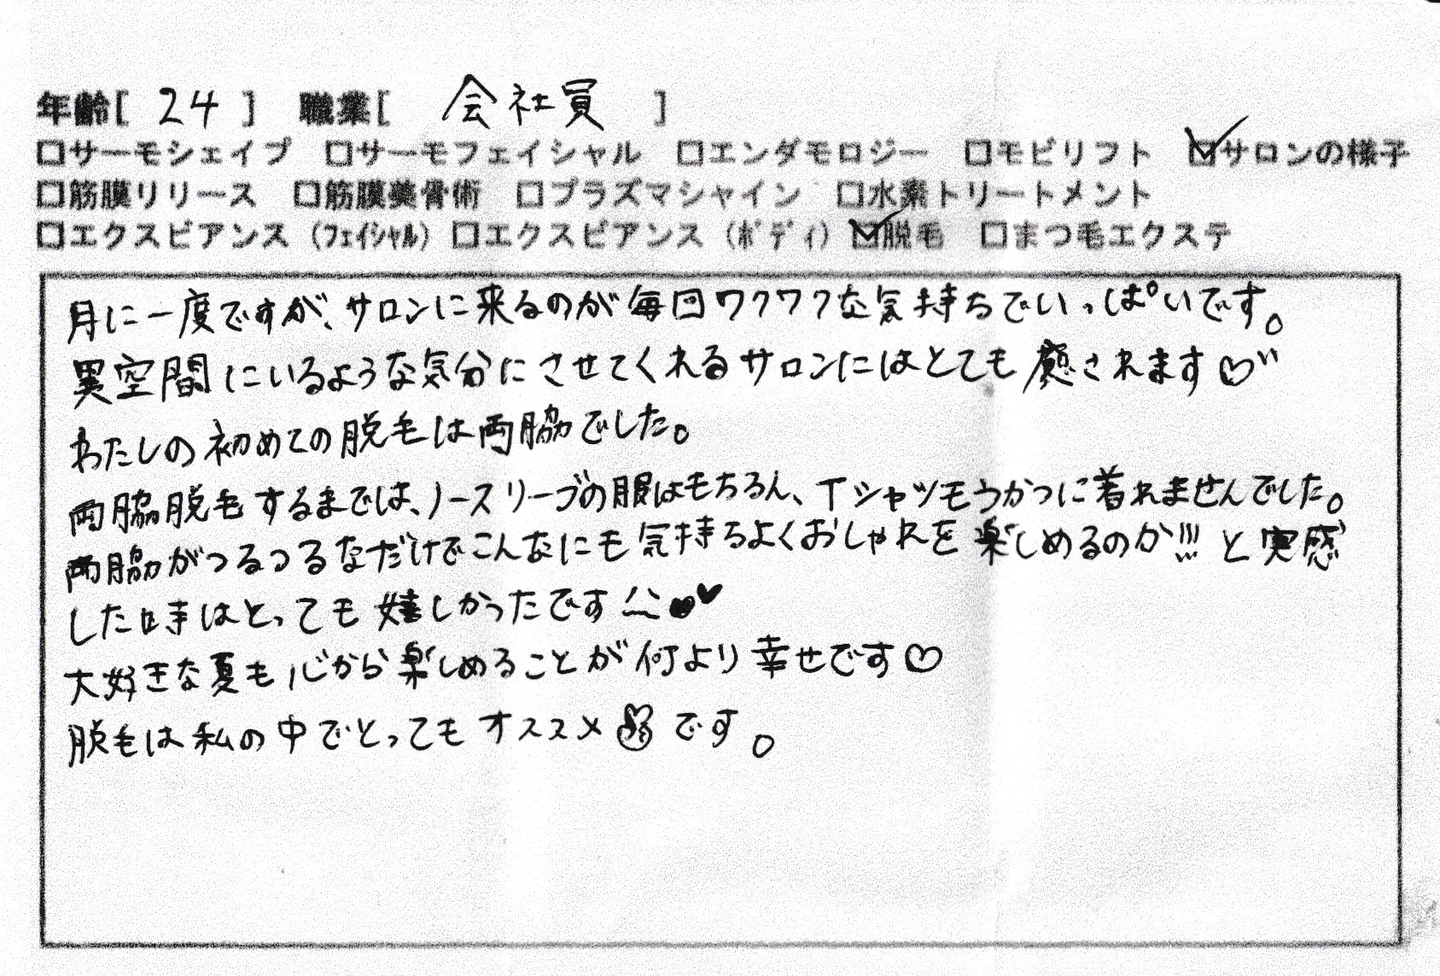 年齢[ 24 ] 職業[ 会社員 ]
□サーモシェイプ □サーモフェイシャル □エンダモロジー □モビリフト ☑サロンの様子
□筋膜リリース □筋膜美骨術 □プラズマシャイン □水素トリートメント
□エクスビアンス（フェイシャル）□エクスビアンス（ボディ）☑脱毛 □まつ毛エクステ
月に一度ですが、サロンに来るのが毎回ワクワクな気持ちでいっぱいです。
異空間にいるような気分にさせてくれるサロンにはとても癒されます♡
わたしの初めての脱毛は両脇でした。
両脇脱毛するまでは、ノースリーブの服はもちろん、Tシャツもうかつに着れませんでした。
両脇がつるつるなだけでこんなにも気持ちよくおしゃれを楽しめるのか!!!と実感
した時はとっても嬉しかったです^^♥♥
大好きな夏も心から楽しめることが何より幸せです♡
脱毛は私の中でとってもオススメ✌です。